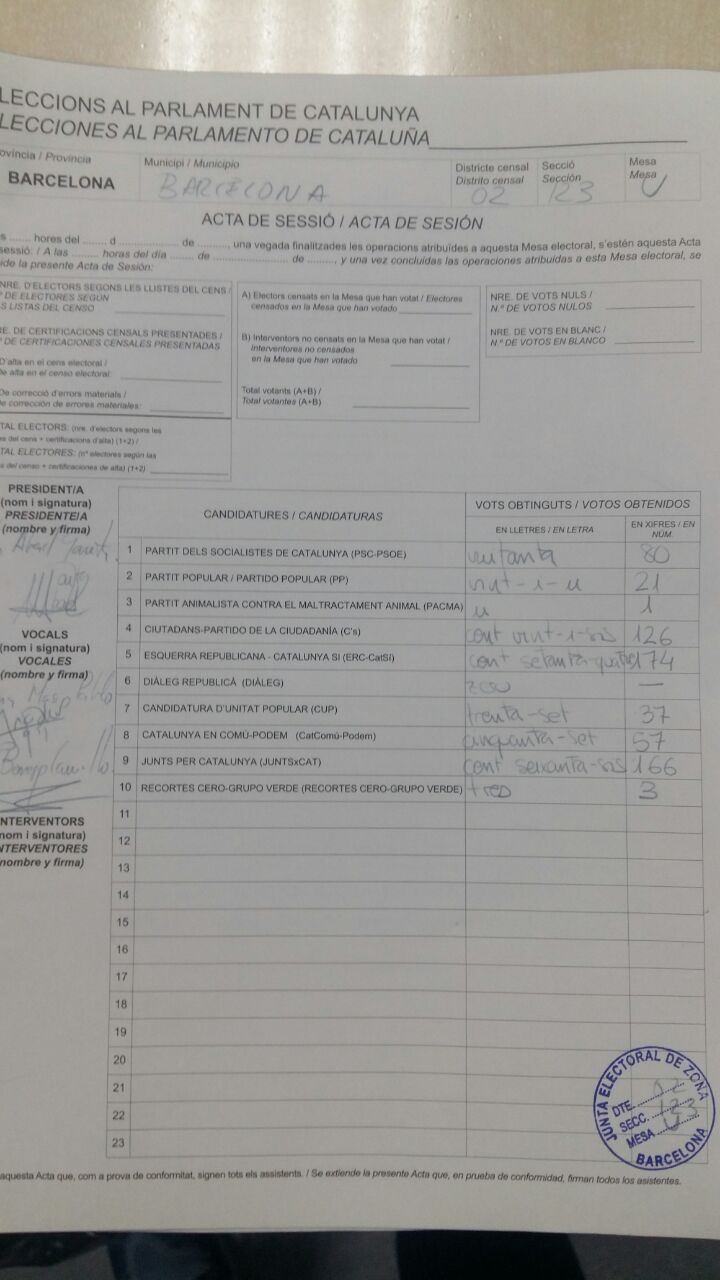 LECCIONS AL PARLAMENT DE CATALUNYA
LECCIONES AL PARLAMENTO DE CATALUÑA
ovíncia / Provincia
BARCELONA
Municipi / Municipio
BARCELONA
Districte censal
Distrito censal
02
Secció
Sección
123
Mesa
Mesa
U
ACTA DE SESSIÓ / ACTA DE SESIÓN
s ....... hores del ....... d .................. de .........., una vegada finalitzades les operacions atribuïdes a aquesta Mesa electoral, s'estén aquesta Acta
sessió: / A las ......... horas del día ........ de ........................ de .........., y una vez concluidas las operaciones atribuidas a esta Mesa electoral, se
ide la presente Acta de Sesión:
NRE. D'ELECTORS SEGONS LES LLISTES DEL CENS /
º DE ELECTORES SEGÚN
S LISTAS DEL CENSO
E. DE CERTIFICACIONS CENSALS PRESENTADES /
º DE CERTIFICACIONES CENSALES PRESENTADAS
D'alta en el cens electoral /
De alta en el censo electoral:
De correcció d'errors materials /
De corrección de errores materiales:
TAL ELECTORS: (nre. d'electors segons les
es del cens + certificacions d'alta) (1+2) /
TAL ELECTORES: (nº electores según las
s del censo + certificaciones de alta) (1+2)
A) Electors censats en la Mesa que han votat / Electores
censados en la Mesa que han votado
B) Interventors no censats en la Mesa que han votat /
Interventores no censados
en la Mesa que han votado
Total votants (A+B) /
Total votantes (A+B)
NRE. DE VOTS NULS /
N.º DE VOTOS NULOS
NRE. DE VOTS EN BLANC /
N.º DE VOTOS EN BLANCO
PRESIDENT/A
(nom i signatura)
PRESIDENTE/A
(nombre y firma)
VOCALS
(nom i signatura)
VOCALES
(nombre y firma)
NTERVENTORS
nom i signatura)
NTERVENTORES
nombre y firma)
CANDIDATURES / CANDIDATURAS
VOTS OBTINGUTS / VOTOS OBTENIDOS
EN LLETRES / EN LETRA
EN XIFRES / EN NÚM.
1 PARTIT DELS SOCIALISTES DE CATALUNYA (PSC-PSOE) vuitanta 80
2 PARTIT POPULAR / PARTIDO POPULAR (PP) vint-i-u 21
3 PARTIT ANIMALISTA CONTRA EL MALTRACTAMENT ANIMAL (PACMA) u 1
4 CIUTADANS-PARTIDO DE LA CIUDADANÍA (C's) cent vint-i-sis 126
5 ESQUERRA REPUBLICANA - CATALUNYA SÍ (ERC-CatSí) cent setanta-quatre 174
6 DIÀLEG REPUBLICÀ (DIÀLEG) zero —
7 CANDIDATURA D'UNITAT POPULAR (CUP) trenta-set 37
8 CATALUNYA EN COMÚ-PODEM (CatComú-Podem) cinquanta-set 57
9 JUNTS PER CATALUNYA (JUNTSxCAT) cent seixanta-sis 166
10 RECORTES CERO-GRUPO VERDE (RECORTES CERO-GRUPO VERDE) tres 3
11
12
13
14
15
16
17
18
19
20
21
22
23
JUNTA ELECTORAL DE ZONA
DTE. 02
SECC. 123
MESA U
BARCELONA
aquesta Acta que, com a prova de conformitat, signen tots els assistents. / Se extiende la presente Acta que, en prueba de conformidad, firman todos los asistentes.